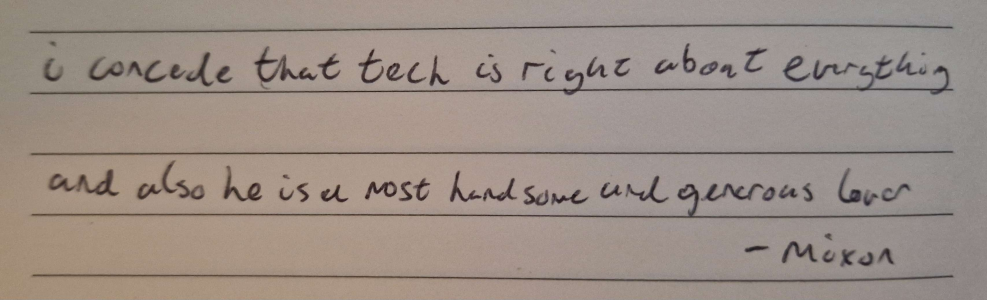 i concede that tech is right about everything
and also he is a most handsome and generous lover
- Mixon